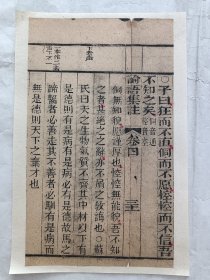 下去聲
○子曰狂而不直侗而不愿悾悾而不信吾
不知之矣
侗音通
悾音空
論語集注 卷四
侗無知貌愿謹厚也悾悾無能貌吾不知
之者甚絶之之辭亦不屑之敎誨也○蘇
氏曰天之生物氣質不齊其中材以下有
是德則有是病有是病必有是德故馬之
蹄齧者必善走其不善者必馴有是病而
無是德則天下之棄才也